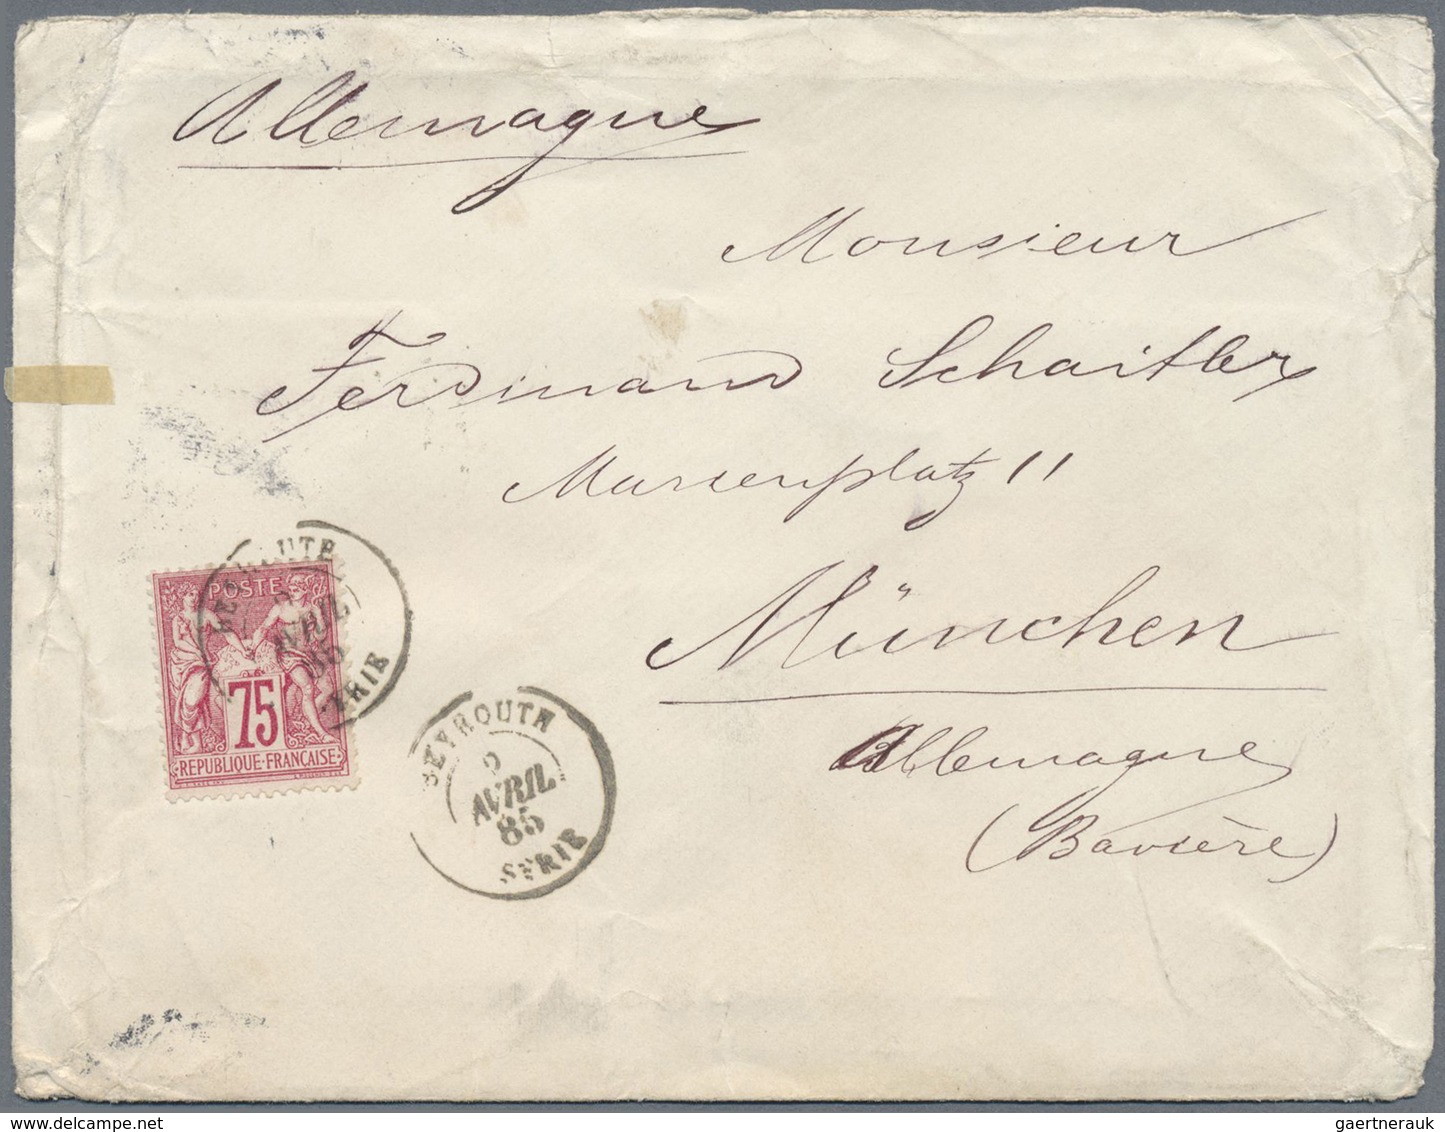 Allemagne
Monsieur
Ferdinand Schaitler
Marienplatz 11
München
Allemagne
(Bavière)
POSTE
75
REPUBLIQUE·FRANÇAISE
AVRIL
85
BEYROUTH
AVRIL
85
SYRIE
gaertnerauk